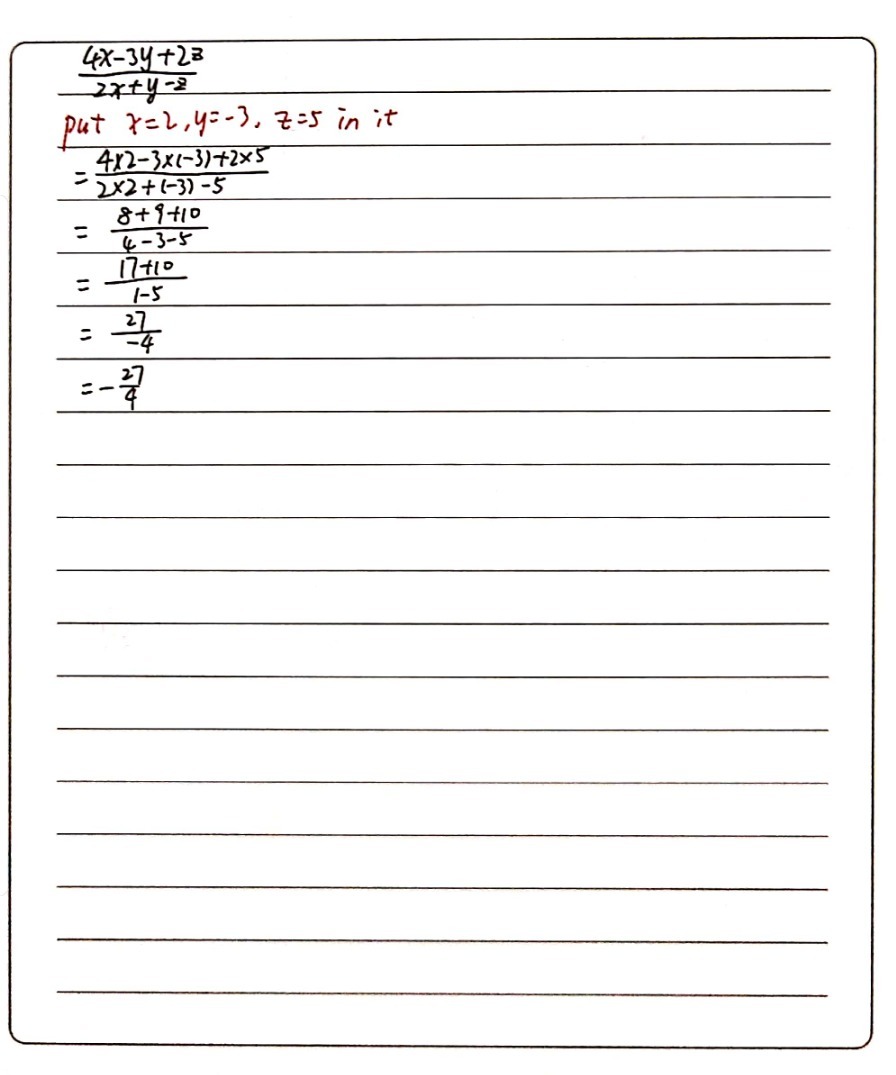 \frac{4x-3y+2z}{2x+y-z}
put x=2, y=-3, z=5 in it
= \frac{4×2-3×(-3)+2×5}{2×2+(-3)-5}
= \frac{8+9+10}{4-3-5}
= \frac{17+10}{1-5}
= \frac{27}{-4}
= -\frac{27}{4}